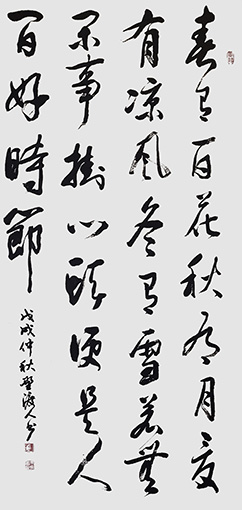 春有百花秋有月夏
有凉風冬有雪若無
閒事掛心頭便是人
間好時節
戊戌仲秋渡人书